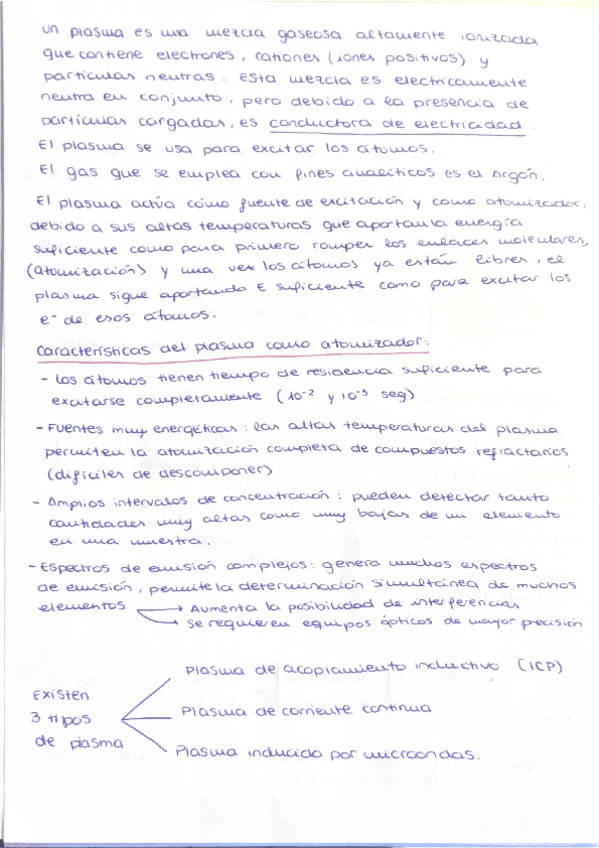 un plasma es una mezcla gaseosa altamente ionizada
que contiene electrones, cationes (iones positivos) y
partículas neutras. Esta mezcla es electricamente
neutra en conjunto, pero debido a la presencia de
partículas cargadas, es conductora de electricidad.
El plasma se usa para excitar los átomos.
El gas que se emplea con fines analíticos es el Argón.
El plasma actúa como fuente de excitación y como atomizador,
debido a sus altas temperaturas que aportan la energía
suficiente como para primero romper los enlaces moleculares,
(atomización) y una vez los átomos ya están libres, el
plasma sigue aportando E suficiente como para excitar los
e⁻ de esos átomos.
Características del plasma como atomizador:
- Los átomos tienen tiempo de residencia suficiente para
excitarse completamente (10⁻² y 10⁻³ seg)
- Fuentes muy energéticas: las altas temperaturas del plasma
permiten la atomización completa de compuestos refractarios
(difíciles de descomponer)
- Amplios intervalos de concentración: pueden detectar tanto
cantidades muy altas como muy bajas de un elemento
en una muestra.
- Espectros de emisión complejos: genera muchos espectros
de emisión, permite la determinación simultánea de muchos
elementos → Aumenta la posibilidad de interferencias
→ se requieren equipos ópticos de mayor precisión
Plasma de acoplamiento inductivo (ICP)
Existen
3 tipos
de plasma
Plasma de corriente continua
Plasma inducido por microondas.